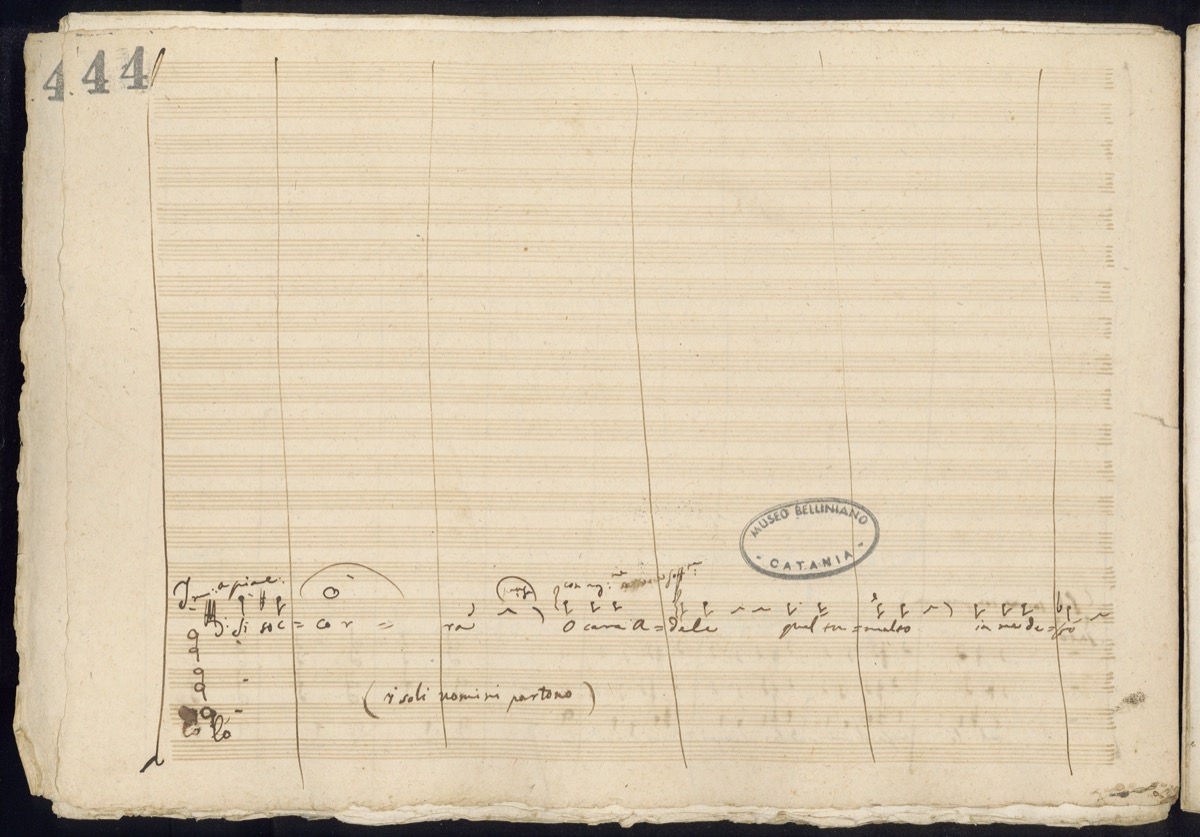 444
MUSEO BELLINIANO
- CATANIA -
a piac:
Di si soc = cor = rà O cara A = dele quel tu = multo in me de = stò
(i soli uomini partono)
lo lo